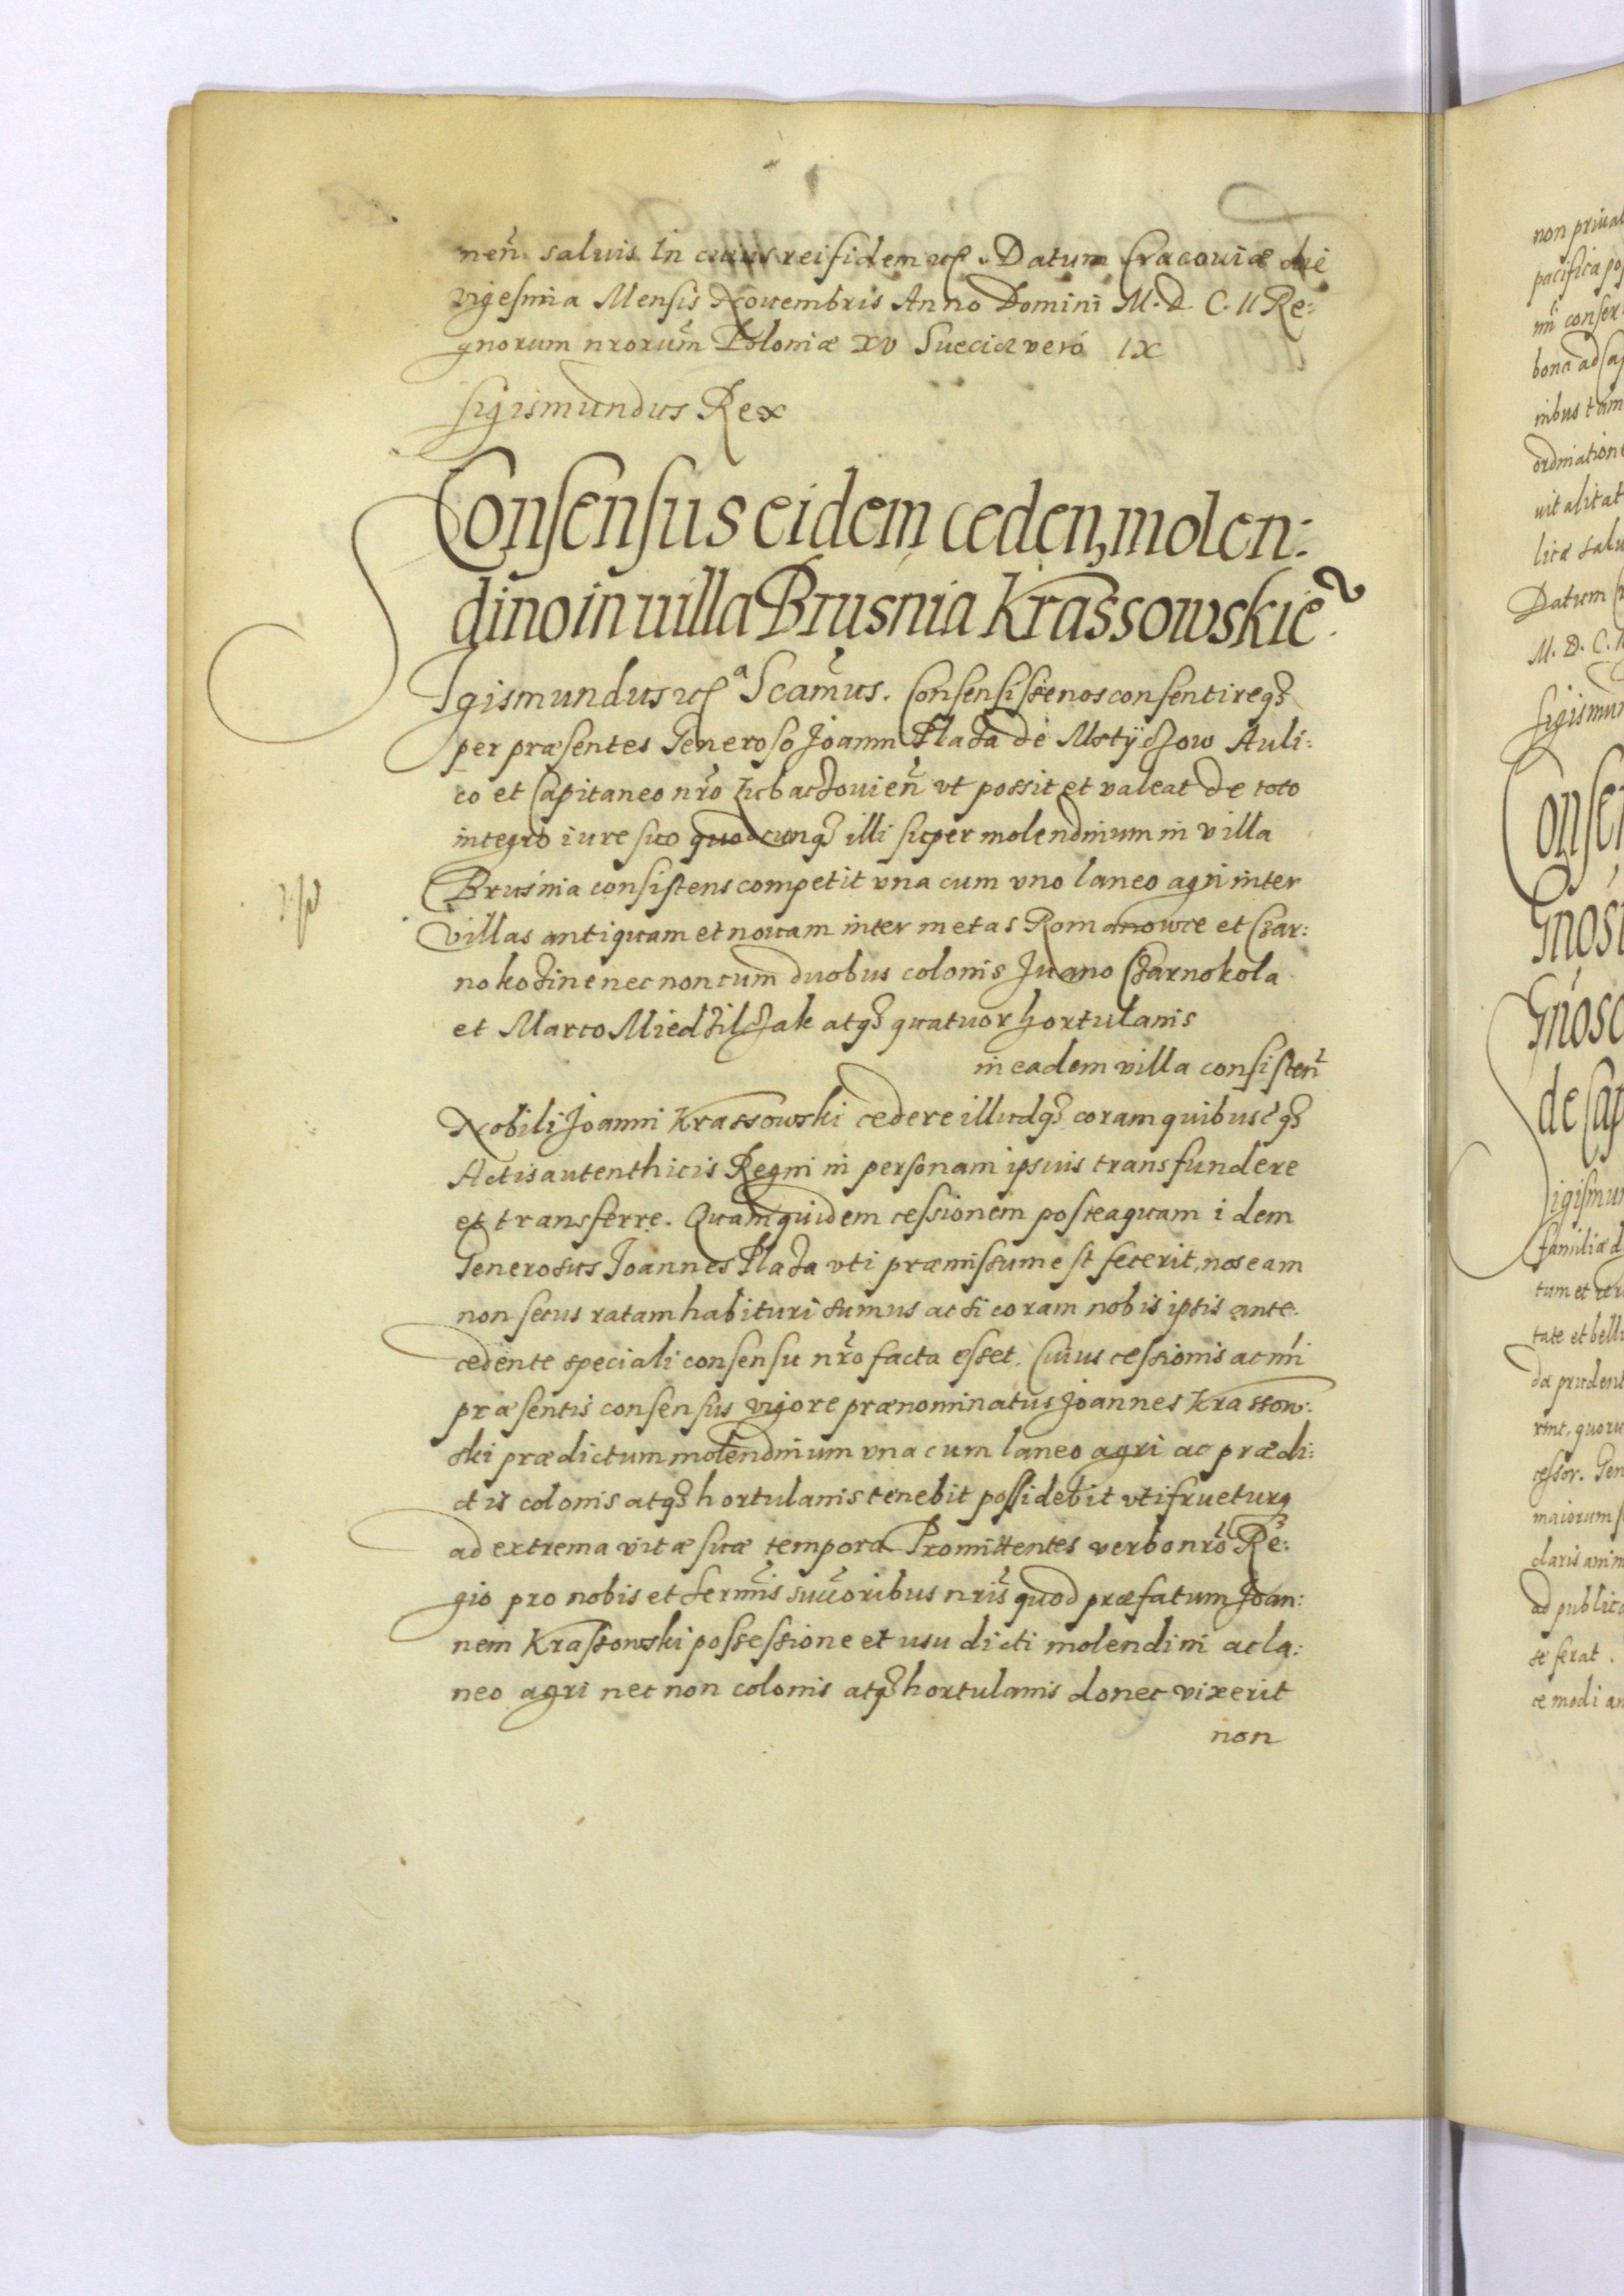 nen̄ saluis. In cuius rei fidem etc. Datum Cracouiæ die
vigesima Mensis Nouembris Anno Domini M. D. C. II Re:
gnorum nrorum̄ Poloniæ XV Sueciæ veró IX
Sigismundus Rex
Consensus eidem ceden, molen:
dino in uilla Brusnia Krassowskie
Sigismundus etc. Scam̄us. Consensisse nos consentireqȝ
per præsentes Generoso Joanni Plaza de Mstyczow Auli:
co et Capitaneo nr̄o Lubaczouien̄ vt possit et valeat de toto
integro iure suo quodcunqȝ illi super molendinum in villa
Brusnia consistens competit vna cum vno laneo agri inter
villas antiquam et nouam inter metas Romanowce et Czar:
nokozine nec non cum duobus colonis Juano Czarnokola
et Marco Miedzilczak atqȝ quatuor hortulanis
in eadem villa consisten̄
Nobili Joanni Krassowski cedere illudqȝ coram quibuscqȝ
Actis autenthicis Regni in personam ipsius transfundere
et transferre. Quam quidem cessionem posteaquam idem
Generosus Joannes Plaza vti præmissum est fecerit, nos eam
non secus ratam habituri sumus ac si coram nobis ipsis ante:
cedente speciali consensu nr̄o facta esset. Cuius cessionis ac nri
præsentis consensus vigore prænominatus Joannes Krassow:
ski prædictum molendinum vna cum laneo agri ac prædi:
ctis colonis atqȝ hortulanis tenebit possidebit vtifrueturqȝ
ad extrema vitæ suæ tempora Promittentes verbo nr̄o Re:
gio pro nobis et Serm̄is succ̄oribus nr̄is quod præfatum Joan:
nem Krassowski possessione et usu dicti molendini ac la:
neo agri nec non colonis atqȝ hortulanis donec vixerit
non
non priuat
pacifica pos
nri conser
bona ad Cap
inibus tam
ordinatione
uitalitat
licæ salu
Datum C
M. D. C. I
Sigismun
Consen
Gnosi
Gnosc
de Cap
Sigismun
familiæ d
tum et
tate et bell
da prudent
rint, quoru
cessor. Gen
maiorum
claris anim
ad public
se ferat.
ce modi an